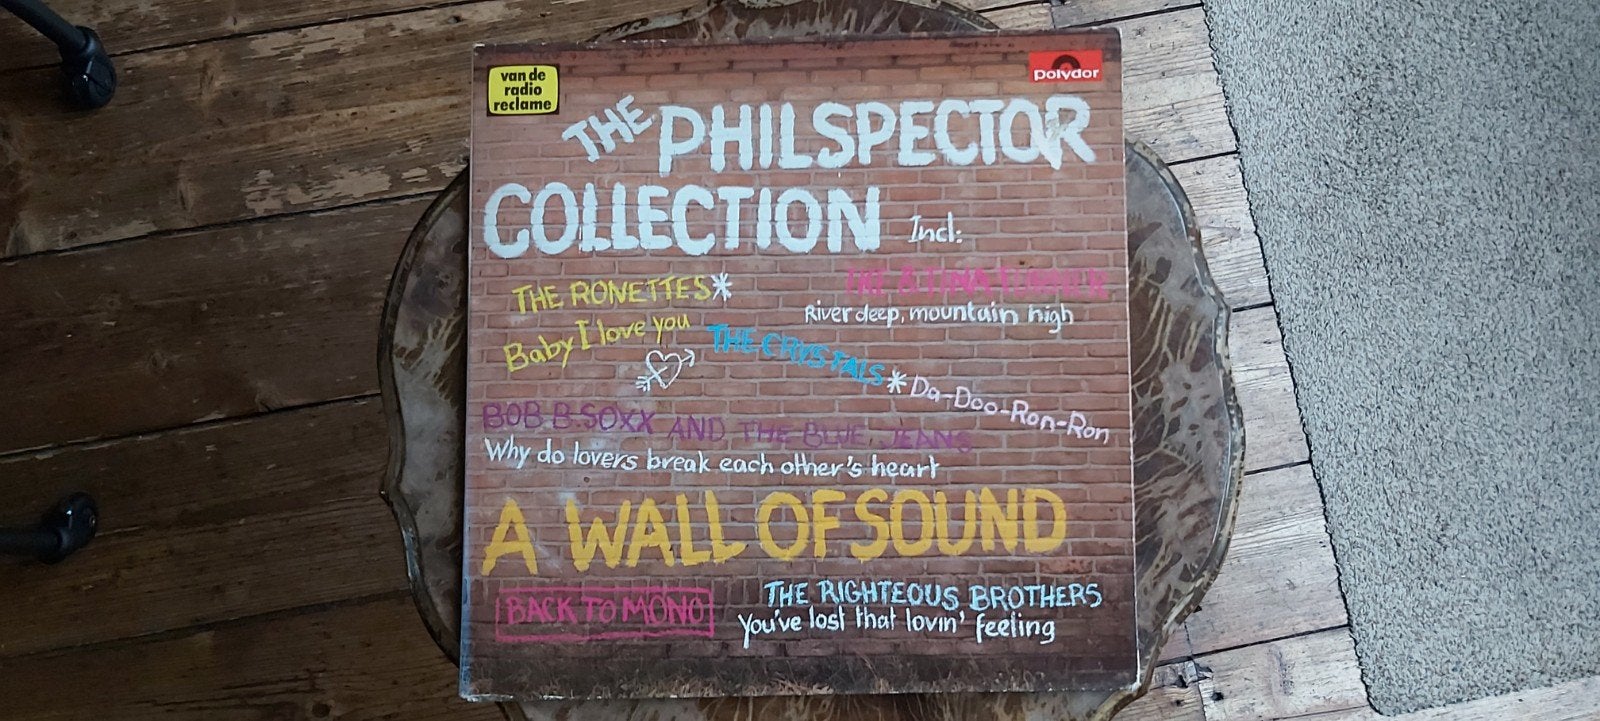 van de
radio
reclame
polydor
THE PHIL SPECTOR
COLLECTION Incl:
THE RONETTES*
Baby I love you
IKE & TINA TURNER
River deep, mountain high
THE CRYSTALS * Da-Doo-Ron-Ron
BOB B. SOXX AND THE BLUE JEANS
Why do lovers break each other's heart
A WALL OF SOUND
BACK TO MONO
THE RIGHTEOUS BROTHERS
You've lost that lovin' feeling